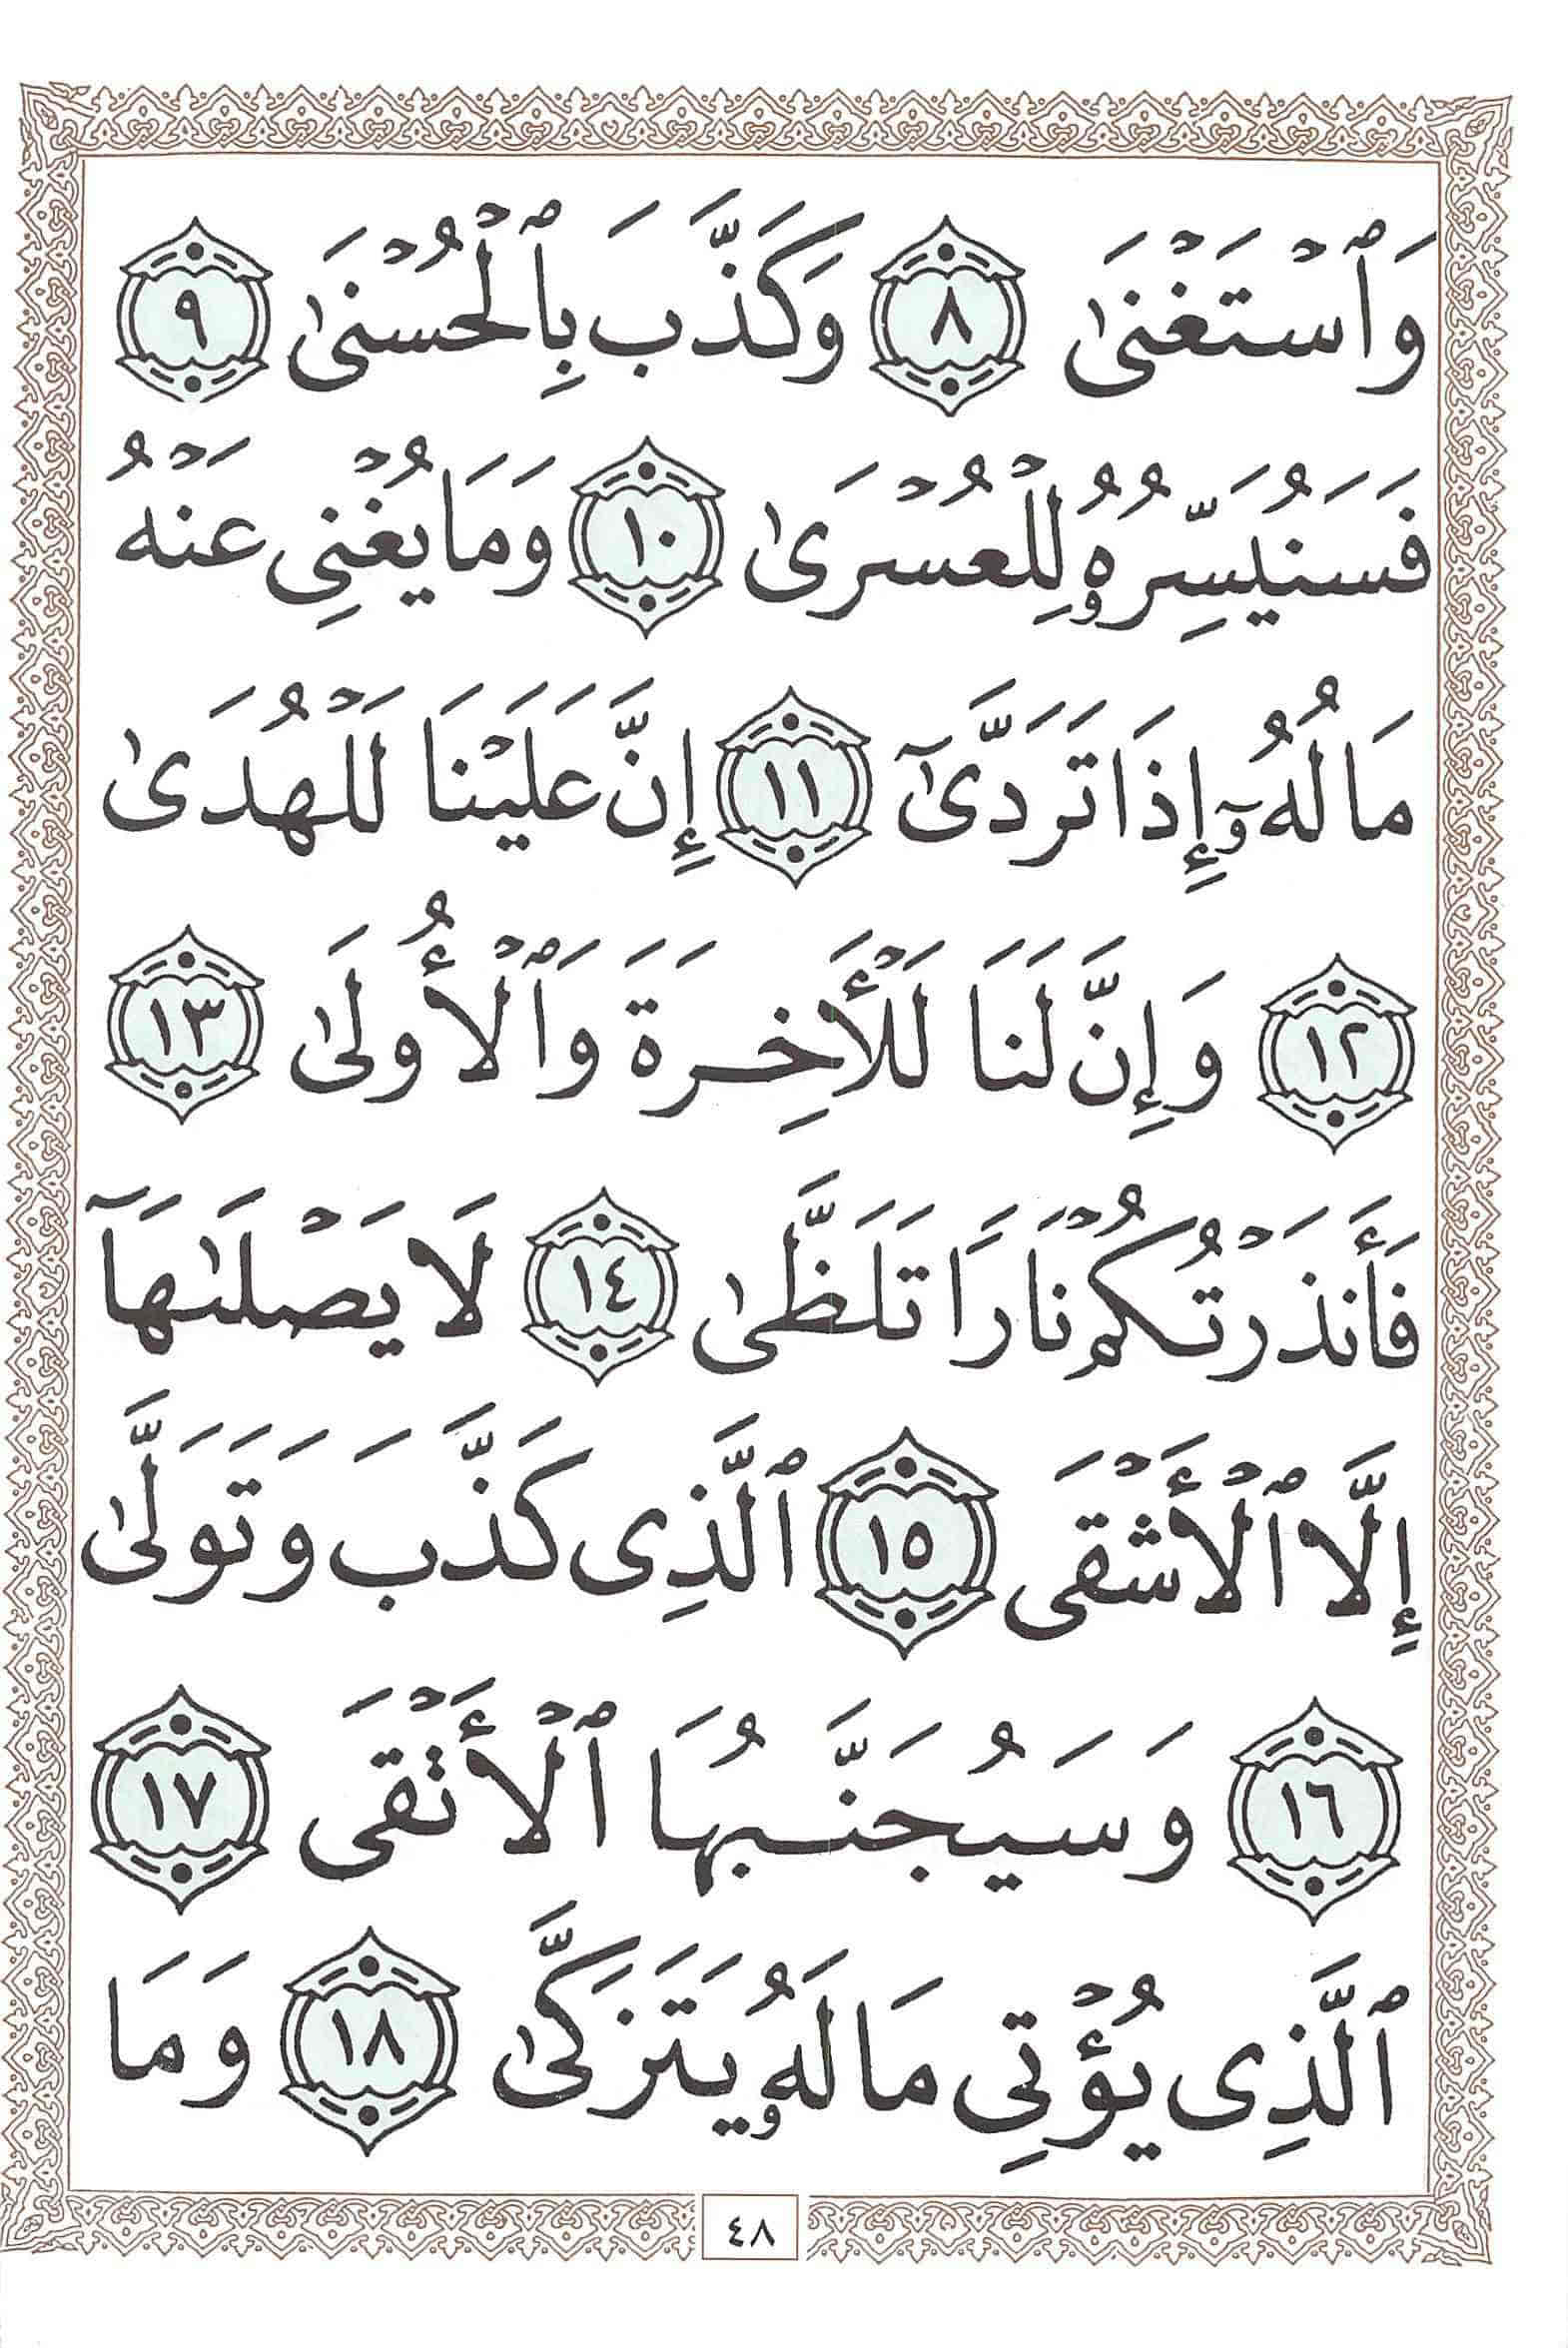 وَٱسْتَغْنَىٰ ٨ وَكَذَّبَ بِٱلْحُسْنَىٰ ٩
فَسَنُيَسِّرُهُۥ لِلْعُسْرَىٰ ١٠ وَمَا يُغْنِى عَنْهُ
مَالُهُۥٓ إِذَا تَرَدَّىٰٓ ١١ إِنَّ عَلَيْنَا لَلْهُدَىٰ
١٢ وَإِنَّ لَنَا لَلْأَخِرَةَ وَٱلْأُولَىٰ ١٣
فَأَنذَرْتُكُمْ نَارًا تَلَظَّىٰ ١٤ لَا يَصْلَىٰهَآ
إِلَّا ٱلْأَشْقَى ١٥ ٱلَّذِى كَذَّبَ وَتَوَلَّىٰ
١٦ وَسَيُجَنَّبُهَا ٱلْأَتْقَى ١٧
ٱلَّذِى يُؤْتِى مَالَهُۥ يَتَزَكَّىٰ ١٨ وَمَا
٤٨